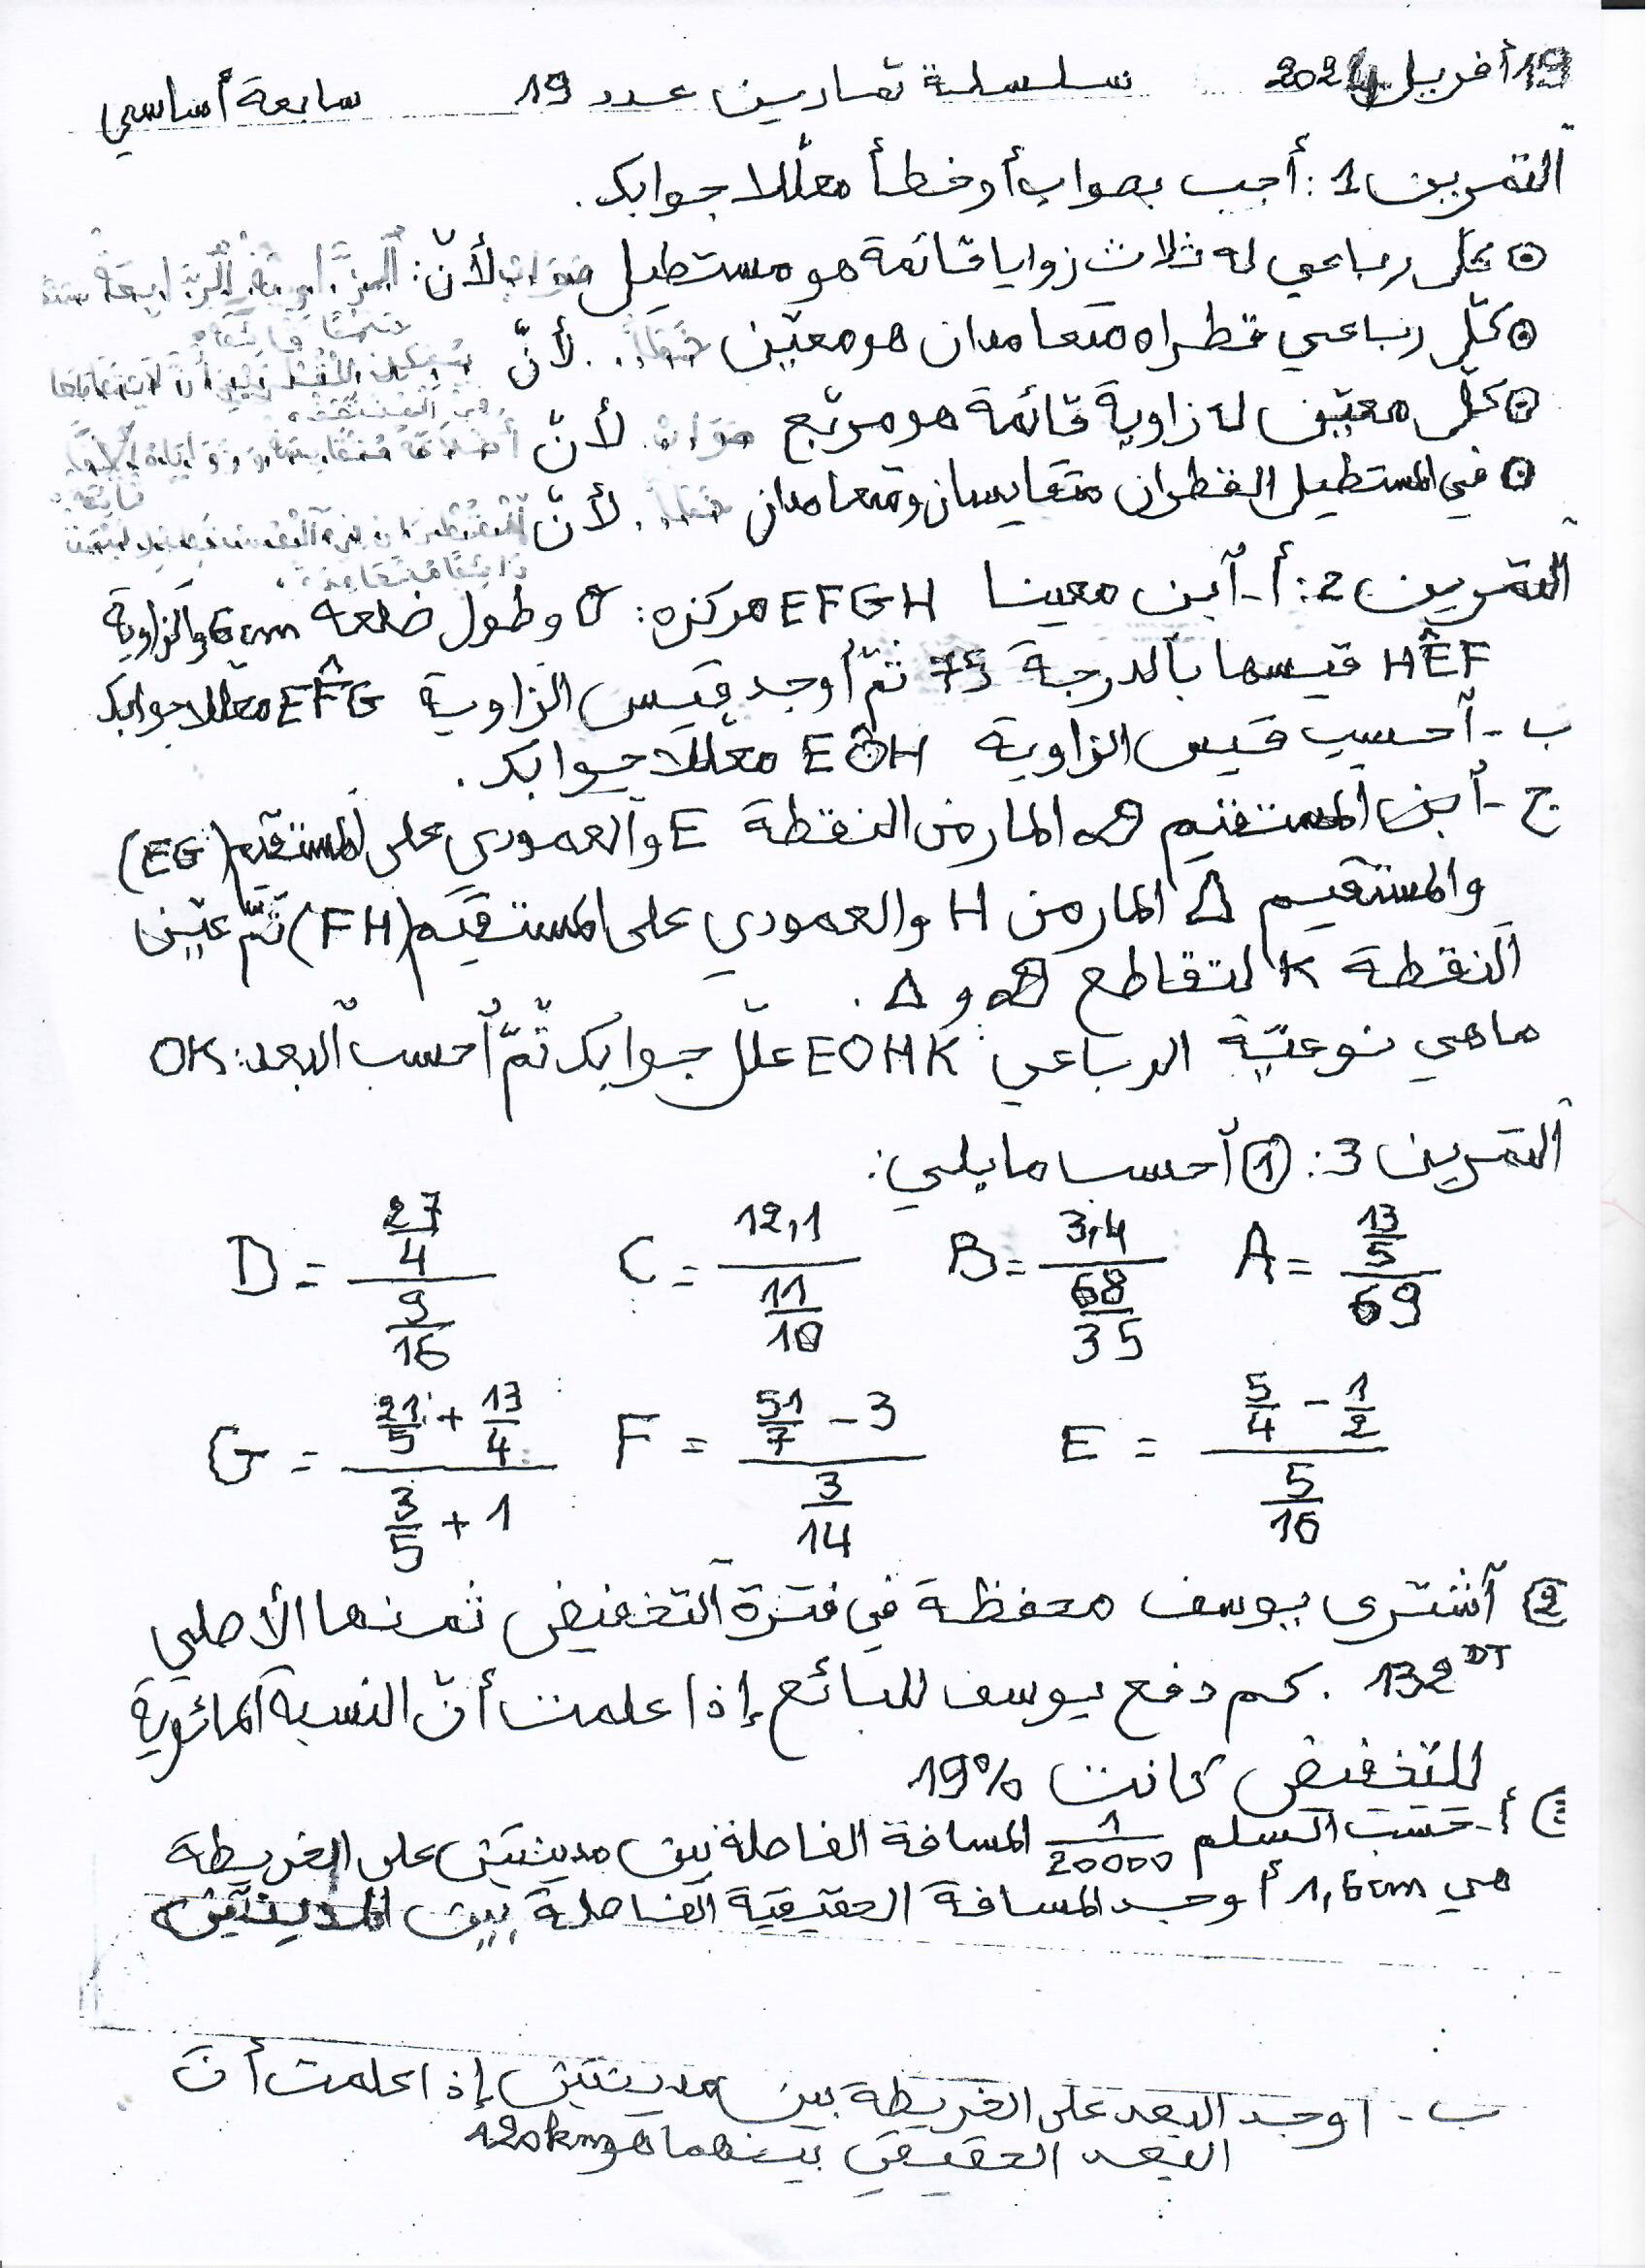 19 أفريل 2024 سلسلة تمارين عدد 19 سابعة أساسي
التمرين 1: أجب بصواب أو خطأ معلّلا جوابك.
كلّ رباعي له ثلاث زوايا قائمة هو مستطيل صواب لأنّ: الزاوية الرابعة
حتما قائمة
كلّ رباعي قطراه متعامدان هو معيّن خطأ.. لأنّ يمكن للقطرين أن لا يتقاطعا
في المنتصف.
كلّ معيّن له زاوية قائمة هو مربّع صواب لأنّ أضلاعه متقايسة وزواياه كلها
قائمة.
في المستطيل القطران متقايسان ومتعامدان خطأ.. لأنّ القطران في المستطيل ليسا
دائما متعامدين.
التمرين 2: أ- آبن معينا EFGH مركزه: O وطول ضلعه 6cm والزاوية
HÊF قيسها بالدرجة 75 ثمّ أوجد قيس الزاوية EF̂G معلّلا جوابك
ب- آحسب قيس الزاوية EÔH معلّلا جوابك.
ج- آبن المستقيم D المار من النقطة E والعمودي على المستقيم (EG)
والمستقيم Δ المار من H والعمودي على المستقيم (FH) ثمّ عيّن
النقطة K لتقاطع D و Δ.
ماهي نوعيّة الرباعي EOHK علّل جوابك ثمّ آحسب البعد: OK
التمرين 3: ① آحسب ما يلي:
A = (13/5)/69 B = 3,4/(68/35) C = 12,1/(11/10) D = (27/4)/(9/16)
E = (5/4 - 1/2)/(5/16) F = (51/7 - 3)/(3/14) G = (21/5 + 13/4)/(3/5 + 1)
② آشترى يوسف محفظة في فترة التخفيض ثمنها الأصلي
132DT . كم دفع يوسف للبائع إذا علمت أنّ النسبة المائوية
للتخفيض كانت 19%
③ أ- حسب السلم 1/20000 المسافة الفاصلة بين مدينتين على الخريطة
هي 1,6cm أوجد المسافة الحقيقية الفاصلة بين المدينتين
ب- اوجد البعد على الخريطة بين مدينتين إذا علمت أنّ
البعد الحقيقي بينهما هو 120km